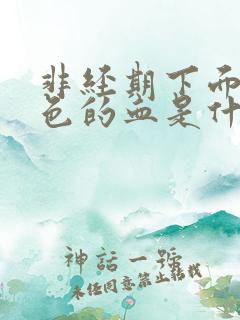 非经期下面
色的血是什
神話一號
未经同意禁止转载